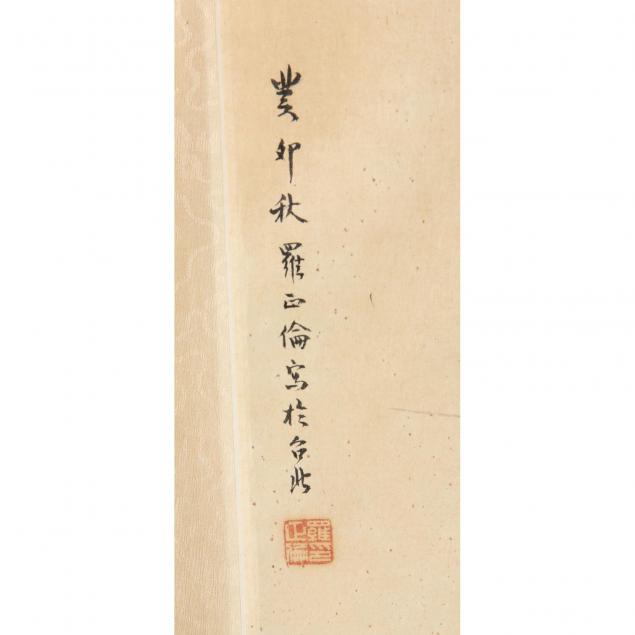 癸卯秋羅正倫寫於台北
羅正倫印